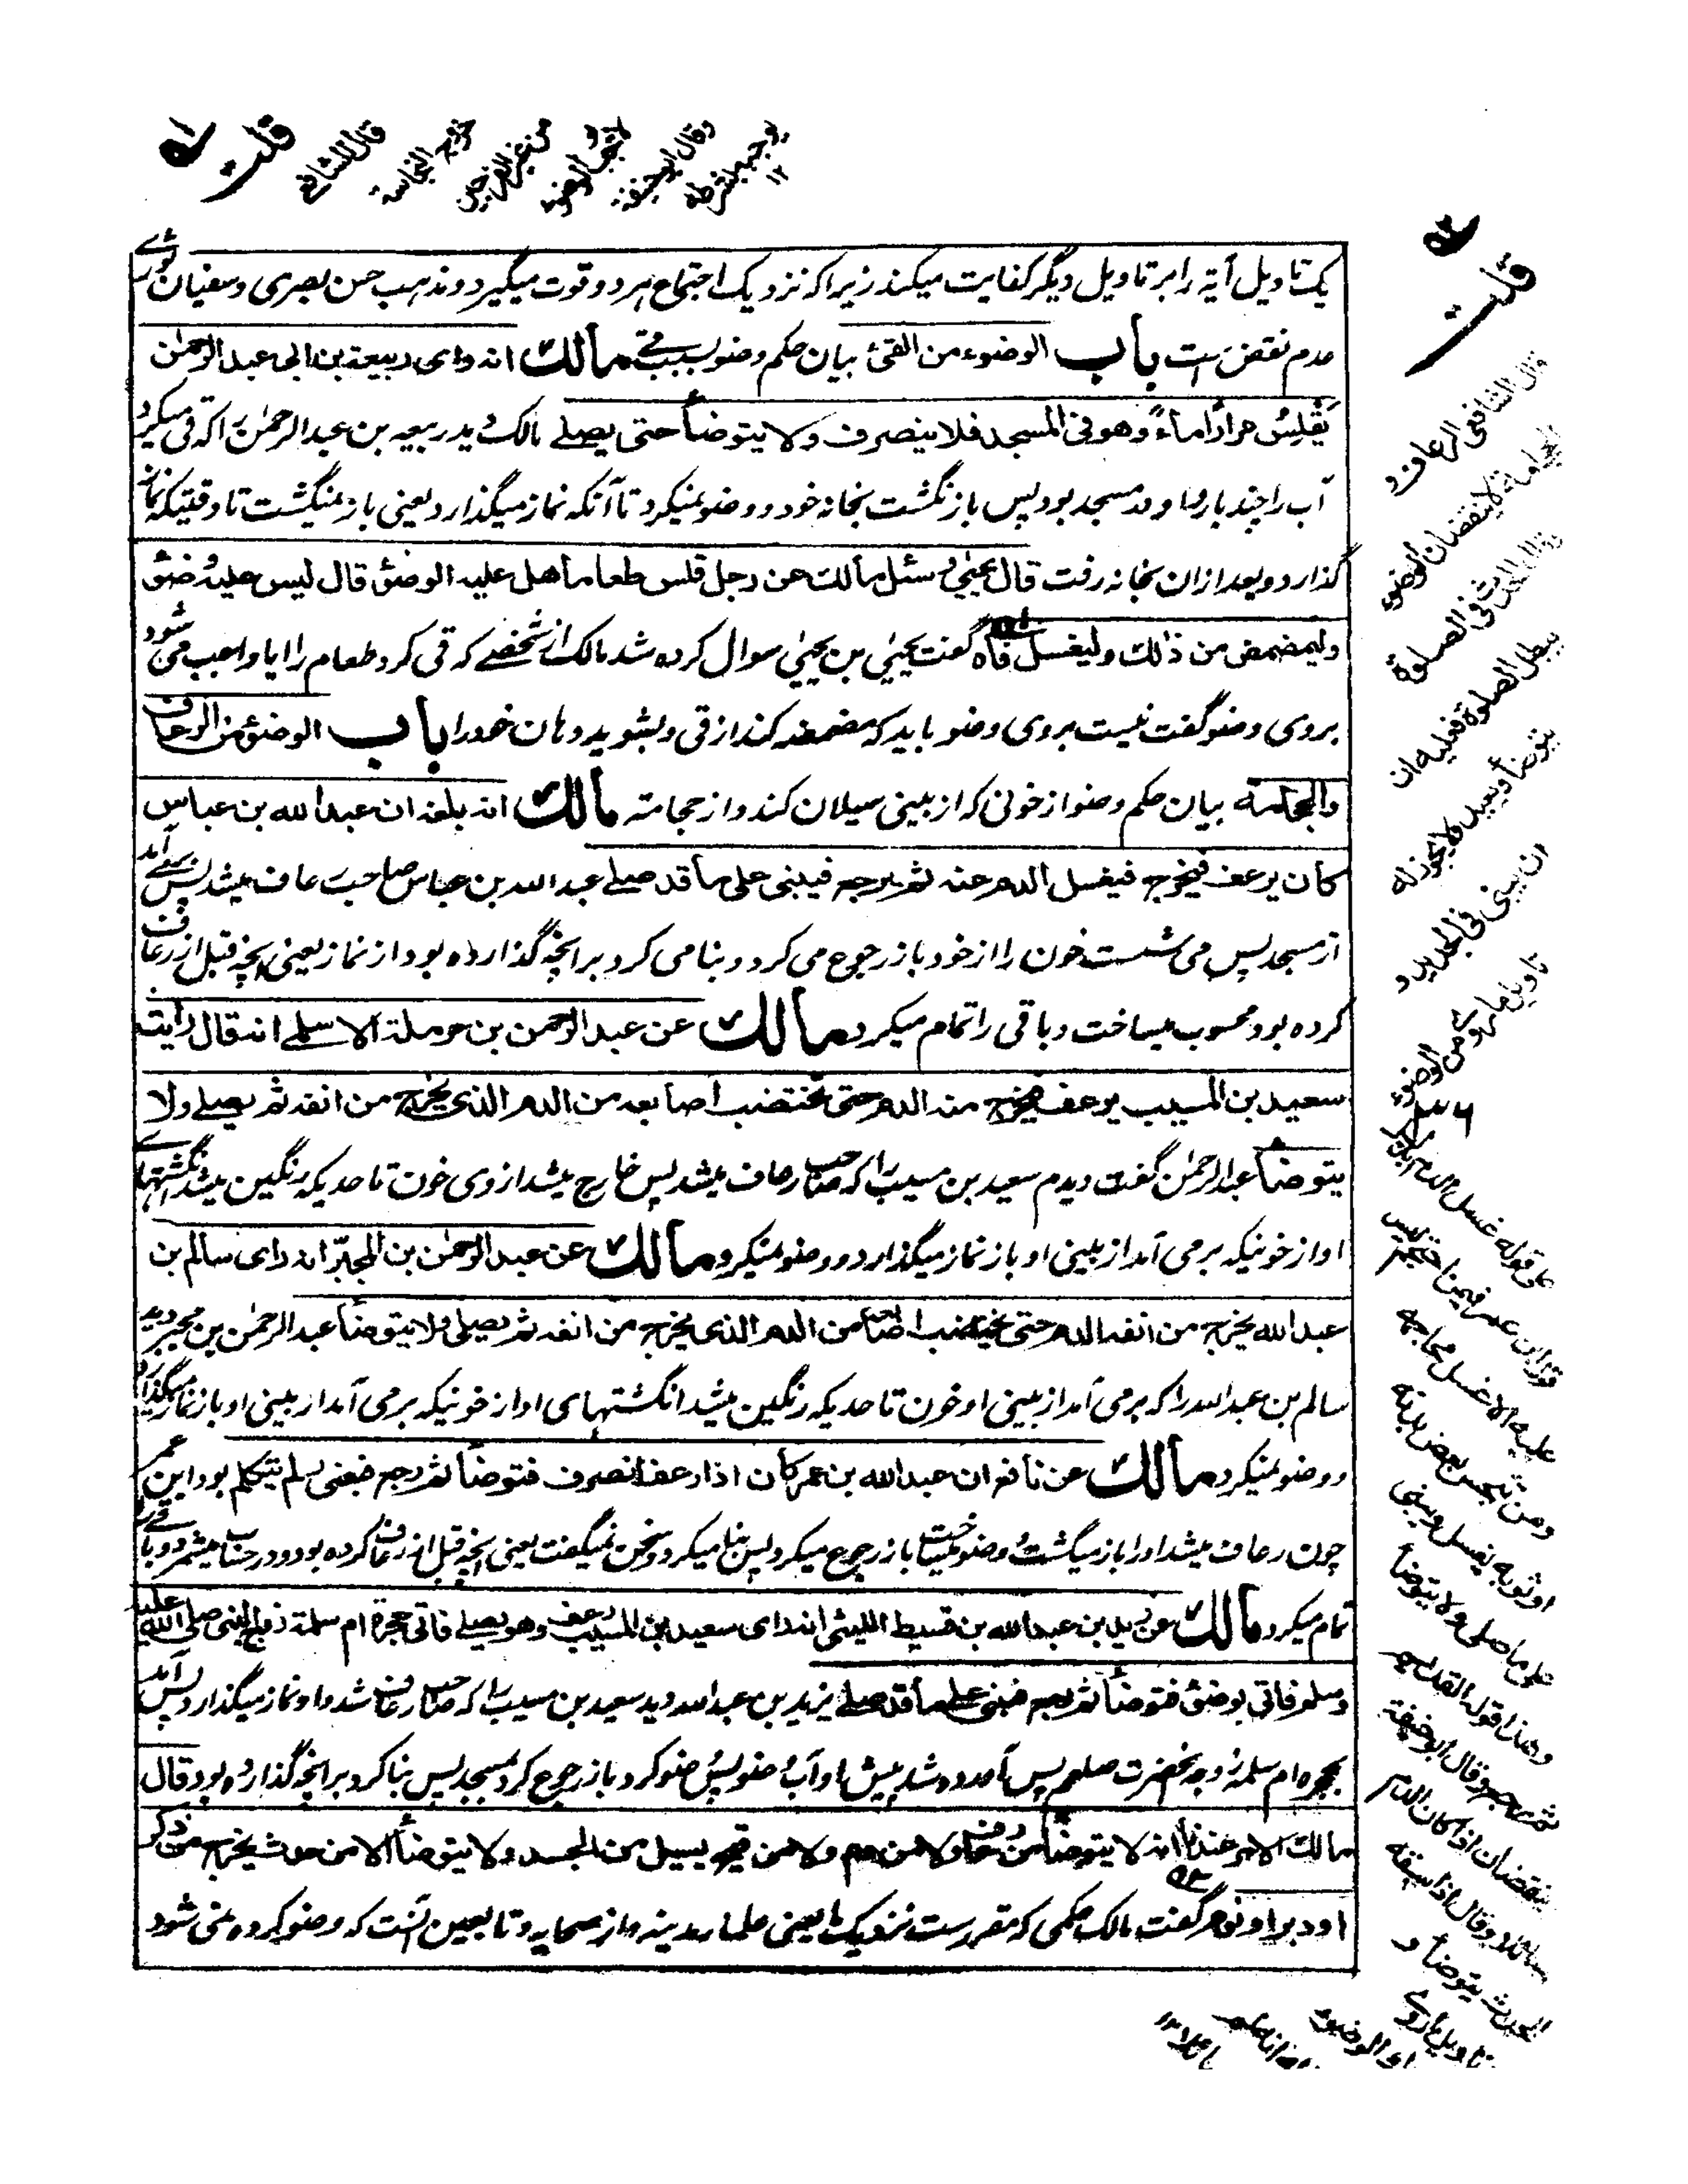 قلت
قال الشافعي
خروج النجاسة
من غير المخرجين
لا يوجب الوضوء
وقال ابو حنيفة
يوجبه بشرطه
۱۲
یک تاویل آیة را بر تاویل دیگر کفایت میکند زیرا که نزدیک اجتماع هر دو قوت میگیرد و مذهب حسن بصری و سفیان ثوری
عدم نقض ست باب الوضوء من القئ بیان حکم وضو بسبب قے مالك انه رای ربیعة بن ابی عبد الرحمٰن
یَقْلِسُ مرارًا ماءً وهو فی المسجد فلا ینصرف ولا یتوضأ حتی یصلے مالک دید ربیعه بن عبد الرحمٰن را که قی میکرد
آب را چند بار و او در مسجد بود پس باز نگشت بخانه خود و وضو نمیکرد تا آنکه نماز میگذارد یعنی باز نمیگشت تا وقتیکه نماز
گذارد و بعد ازان بخانه رفت قال یحیٰی و سئل مالك عن رجل قلس طعاما هل علیه الوضوء قال لیس علیه وضوء
ولیمضمض من ذٰلك ولیغسل فاه گفت یحییٰ بن یحییٰ سوال کرده شد مالک از شخصے که قی کرد طعام را ایا واجب می شود
بروی وضو گفت نیست بروی وضو باید که مضمضه کند از قی و بشوید دهان خود را باب الوضوء من الرعاف
والحجامة بیان حکم وضو از خونی که از بینی سیلان کند و از حجامته مالك انه بلغه ان عبد الله بن عباس
کان یرعف فیخرج فیغسل الدم عنه ثم یرجع فیبنی علی ما قد صلے عبد الله بن عباس صاحب رعاف میشد پس برمی آمد
از مسجد پس می شست خون را از خود باز رجوع می کرد و بنا می کرد برانچه گذارده بود از نماز یعنی انچه قبل از رعاف
کرده بود محسوب میساخت و باقی را تمام میکرد مالك عن عبد الرحمن بن حرملة الاسلمے انه قال رأیت
سعید بن المسیب یرعف فیخرج منه الدم حتی تختضب اصابعه من الدم الذی یخرج من انفه ثم یصلے ولا
یتوضأ عبد الرحمٰن گفت دیدم سعید بن مسیب را که صاحب رعاف میشد پس خارج میشد از وی خون تا حدیکه رنگین میشد انگشتهای
او از خونیکه برمی آمد از بینی او باز نماز میگذارد و وضو نمیکرد مالك عن عبد الرحمٰن بن المجبّر انه رای سالم بن
عبد الله یخرج من انفه الدم حتی تختضب اصابعه من الدم الذی یخرج من انفه ثم یصلی ولا یتوضأ عبد الرحمٰن بن مجبر دید
سالم بن عبد الله را که برمی آمد از بینی او خون تا حدیکه رنگین میشد انگشتهای او از خونیکه برمی آمد از بینی او باز نماز میگذارد
و وضو نمیکرد مالك عن نافع ان عبد الله بن عمر کان اذا رعف انصرف فتوضأ ثم رجع فبنی ولم یتکلم بود ابن عمر
چون رعاف میشد او را باز میگشت و وضو میساخت باز رجوع میکرد پس بنا میکرد و سخن نمیگفت یعنی انچه قبل از رعاف کرده بود در حساب میشمرد و باقی را
تمام میکرد مالك عن یزید بن عبد الله بن قسیط اللیثی انه رای سعید بن المسیب رعف وهو یصلے فاتی حجرة ام سلمة زوج النبی صلی الله علیه
وسلم فاتی بوضوء فتوضأ ثم رجع فبنی علی ما قد صلے یزید بن عبد الله دید سعید بن مسیب را که صاحب رعاف شد و او نماز میگذارد پس آمد
بحجره ام سلمه زوجه آنحضرت صلعم پس آورده شد پیش او آب وضو پس وضو کرد باز رجوع کرد بمسجد پس بنا کرد برانچه گذارده بود قال
مالك الامر عندنا انه لا یتوضأ من رعاف ولا من دم ولا من قیح یسیل من الجسد ولا یتوضأ الا من حدث یخرج من ذکر
او دبر او نوم گفت مالک حکمی که مقرر ست نزدیک ما یعنی علمار مدینه از صحابه و تابعین آنست که وضو کرده نمی شود
قلت
قال الشافعی الرعاف و
الحجامة لا ینقضان الوضوء
والحدث فی الصلوة
یبطل الصلوة فعلیه ان
یتوضأ ویعید ولا یجوز له
ان یبنی فی الجدید و
تاویل ما روی من الوضوء
علیه الا غسل محاجمه
ومن تنجس بعض بدنه
او ثوبه یغسل ویبنی
علی ما صلی ولا یتوضأ
وهذا قوله القدیم
وقال ابو حنیفة
ینقضان اذا کان الدم
سائلا وقال اذا سبقه
الحدث یتوضأ و